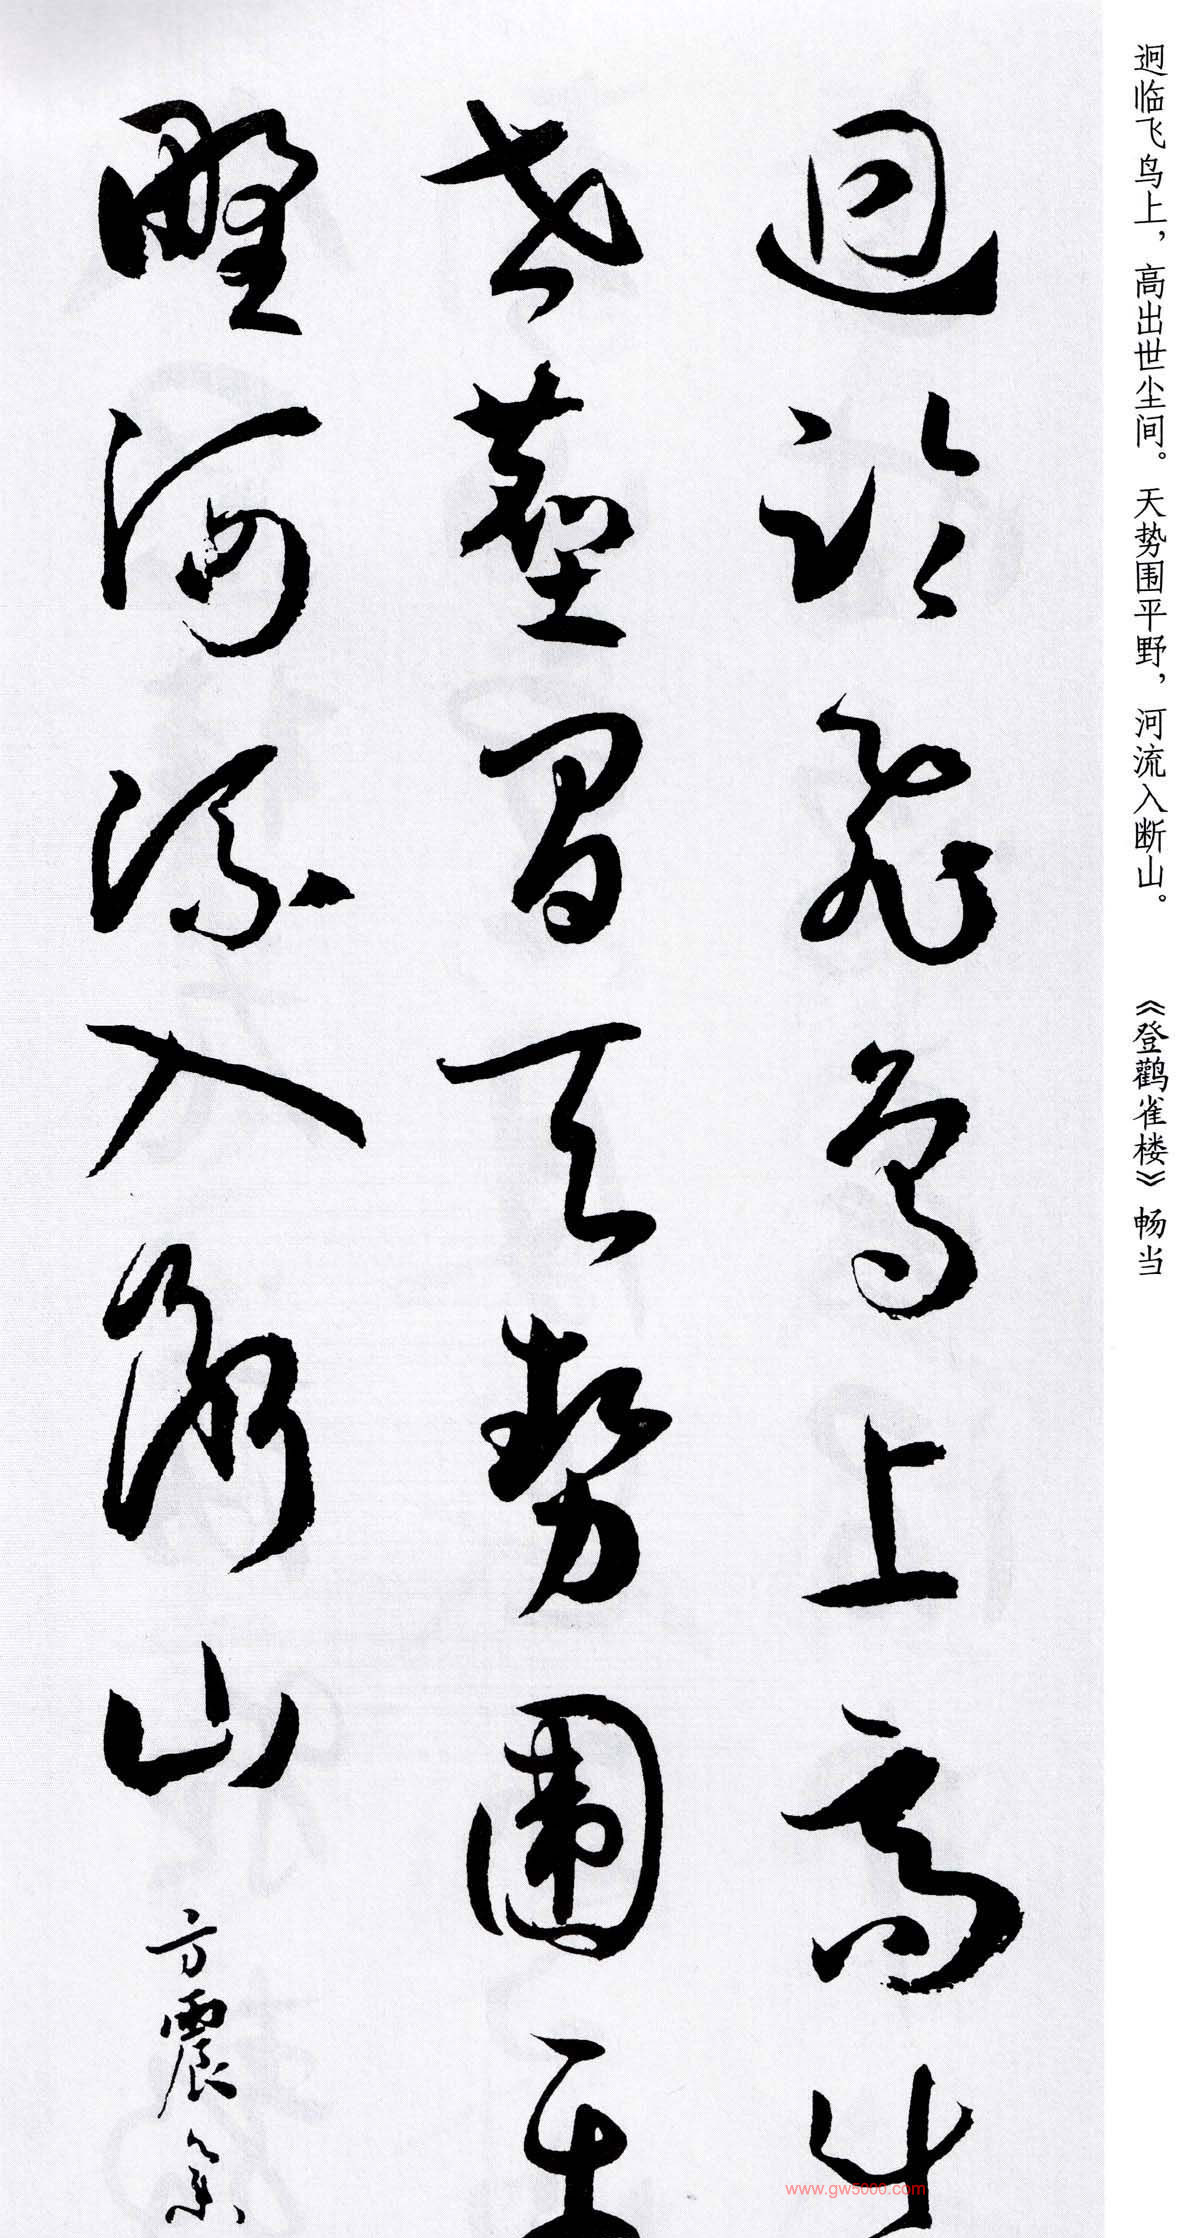 迥临飞鸟上，高出世尘间。天势围平野，河流入断山。 《登鹳雀楼》 畅当
迥臨飛鳥上高出
世塵間天勢圍平
野河流入斷山
方震书
www.gw5000.com